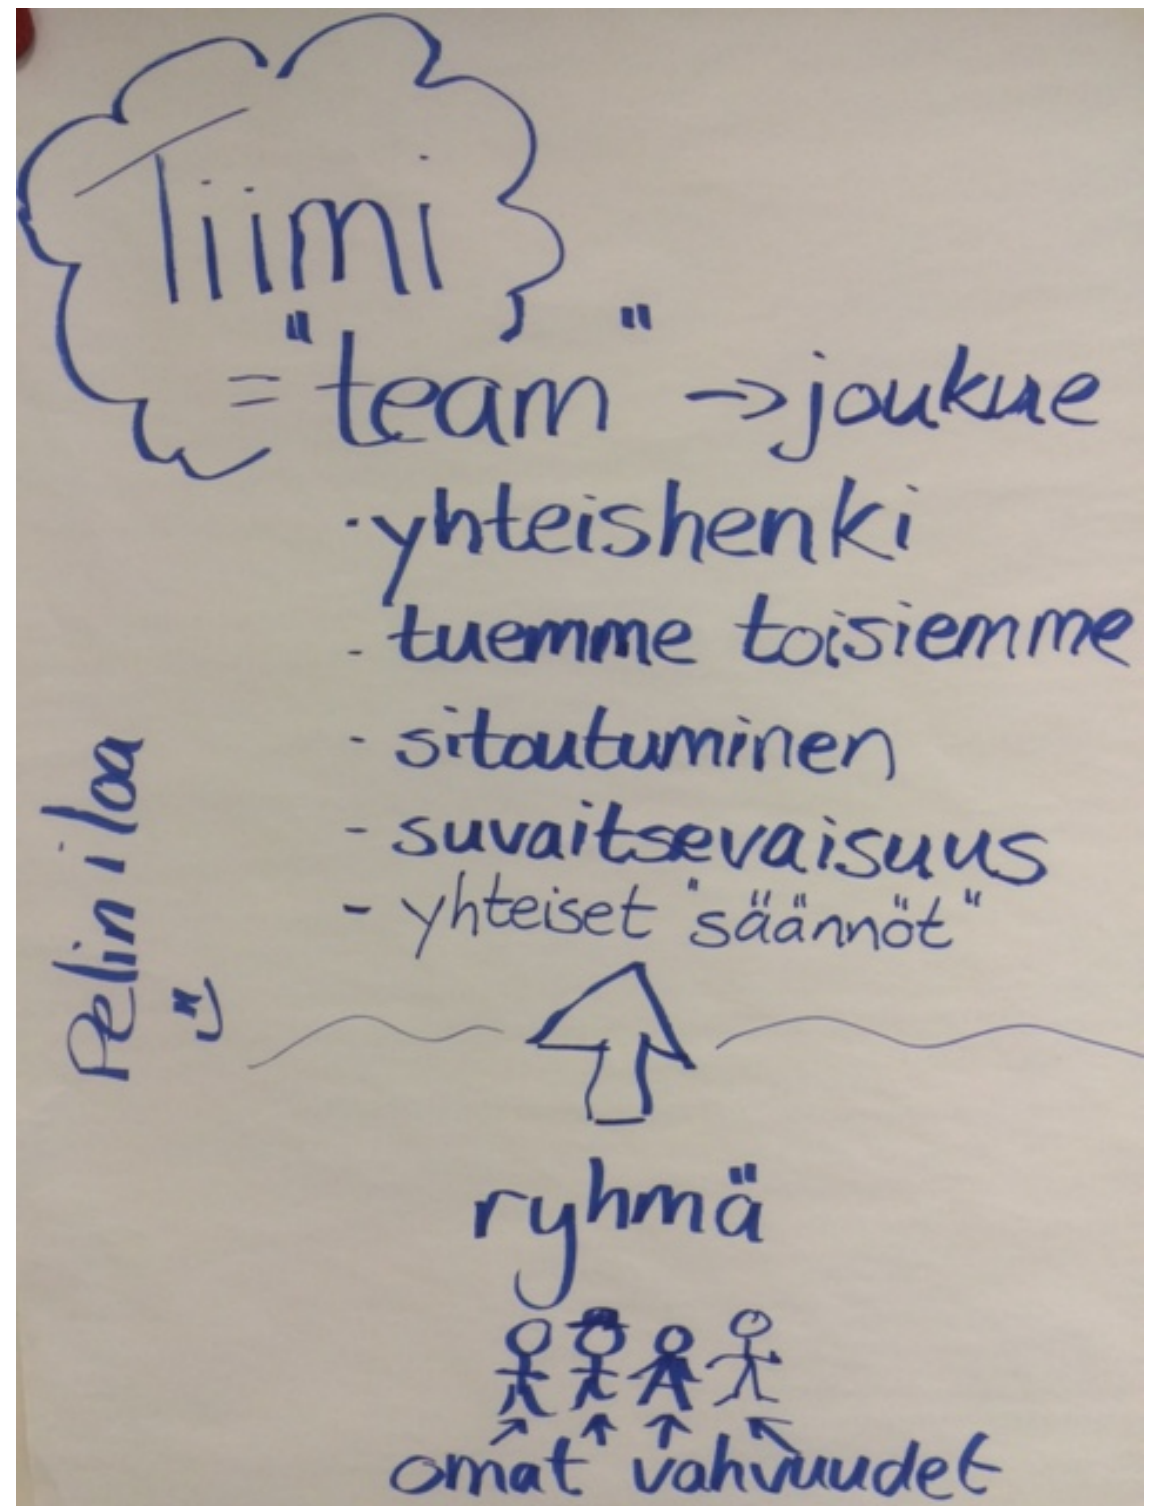 Tiimi
= "team" → joukue
· yhteishenki
- tuemme toisiemme
- sitoutuminen
- suvaitsevaisuus
- yhteiset "säännöt"
Pelin iloa
ryhmä
omat vahvuudet